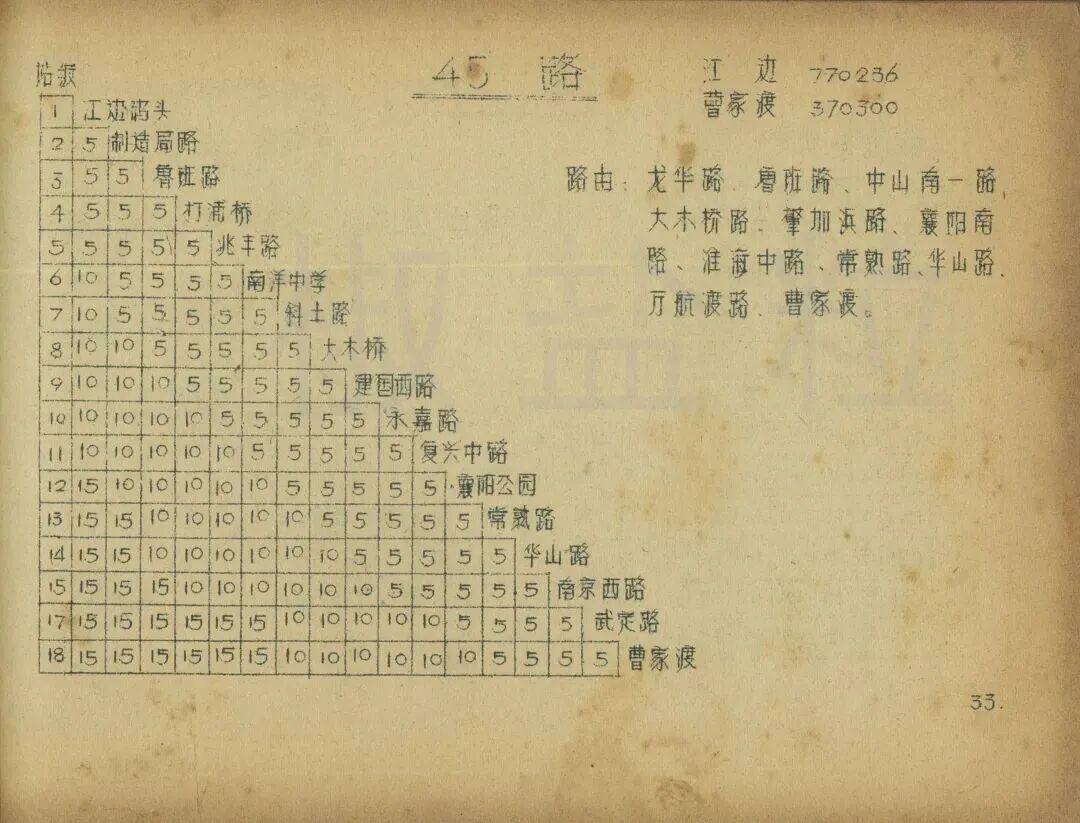 站级
45 路
江 边 770236
曹家渡 370300
1 江边码头
2 5 制造局路
3 5 5 鲁班路
4 5 5 5 打浦桥
5 5 5 5 5 兆丰路
6 10 5 5 5 5 南洋中学
7 10 5 5 5 5 5 斜土路
8 10 10 5 5 5 5 5 大木桥
9 10 10 10 5 5 5 5 5 建国西路
10 10 10 10 10 5 5 5 5 5 永嘉路
11 10 10 10 10 10 5 5 5 5 5 复兴中路
12 15 10 10 10 10 10 5 5 5 5 5 襄阳公园
13 15 15 10 10 10 10 10 5 5 5 5 5 常熟路
14 15 15 10 10 10 10 10 10 5 5 5 5 5 华山路
15 15 15 15 10 10 10 10 10 10 5 5 5 5 5 南京西路
17 15 15 15 15 15 15 10 10 10 10 10 5 5 5 5 武定路
18 15 15 15 15 15 15 10 10 10 10 10 10 5 5 5 5 曹家渡
路由：龙华路、鲁班路、中山南一路、
大木桥路、肇加浜路、襄阳南
路、淮海中路、常熟路、华山路、
万航渡路、曹家渡。
33.